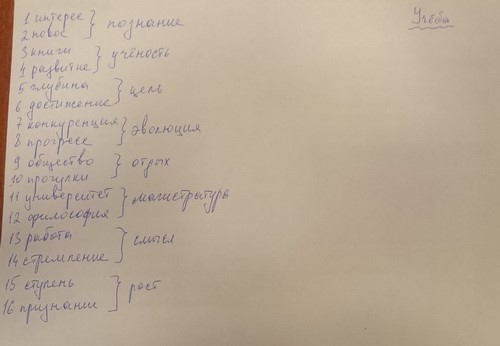 Учёба
1 интерес
2 новое } познание
3 книги
4 развитие } учёность
5 глубина
6 достижение } цель
7 конкуренция
8 прогресс } эволюция
9 общество
10 прогулки } отдых
11 университет
12 философия } магистратура
13 работа
14 стремление } смысл
15 ступень
16 признание } рост